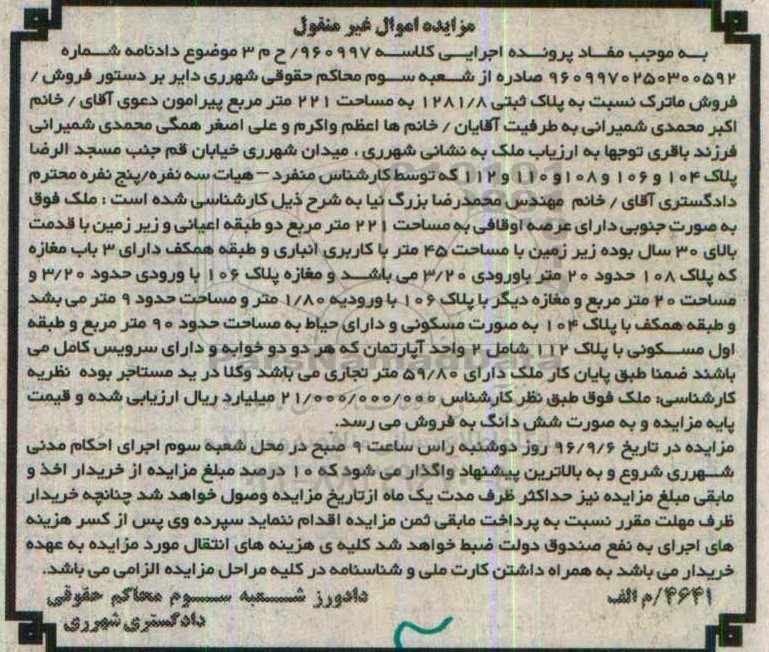 مزایده اموال غیر منقول
به موجب مفاد پرونده اجرایی کلاسه ۹۶۰۹۹۷/ ح م ۳ موضوع دادنامه شماره
۹۶۰۹۹۷۰۲۵۰۳۰۰۵۹۲ صادره از شعبه سوم محاکم حقوقی شهرری دایر بر دستور فروش /
فروش ماترک نسبت به پلاک ثبتی ۱۲۸۱/۸ به مساحت ۲۲۱ متر مربع پیرامون دعوی آقای / خانم
اکبر محمدی شمیرانی به طرفیت آقایان / خانم ها اعظم واکرم و علی اصغر همگی محمدی شمیرانی
فرزند باقری توجها به ارزیاب ملک به نشانی شهرری ، میدان شهرری خیابان قم جنب مسجد الرضا
پلاک ۱۰۴ و ۱۰۶ و ۱۰۸و ۱۱۰ و ۱۱۲ که توسط کارشناس منفرد – هیات سه نفره/پنج نفره محترم
دادگستری آقای / خانم مهندس محمدرضا بزرگ نیا به شرح ذیل کارشناسی شده است : ملک فوق
به صورت جنوبی دارای عرصه اوقافی به مساحت ۲۲۱ متر مربع دو طبقه اعیانی و زیر زمین با قدمت
بالای ۳۰ سال بوده زیر زمین با مساحت ۴۵ متر با کاربری انباری و طبقه همکف دارای ۳ باب مغازه
که پلاک ۱۰۸ حدود ۲۰ متر باورودی ۳/۲۰ می باشد و مغازه پلاک ۱۰۶ با ورودی حدود ۳/۲۰ و
مساحت ۲۰ متر مربع و مغازه دیگر با پلاک ۱۰۶ با ورودیه ۱/۸۰ متر و مساحت حدود ۹ متر می بشد
و طبقه همکف با پلاک ۱۰۴ به صورت مسکونی و دارای حیاط به مساحت حدود ۹۰ متر مربع و طبقه
اول مسکونی با پلاک ۱۱۲ شامل ۲ واحد آپارتمان که هر دو دو خوابه و دارای سرویس کامل می
باشند ضمنا طبق پایان کار ملک دارای ۵۹/۸۰ متر تجاری می باشد وکلا در ید مستاجر بوده نظریه
کارشناسی: ملک فوق طبق نظر کارشناس ۲۱/۰۰۰/۰۰۰/۰۰۰ میلیارد ریال ارزیابی شده و قیمت
پایه مزایده و به صورت شش دانگ به فروش می رسد.
مزایده در تاریخ ۹۶/۹/۶ روز دوشنبه راس ساعت ۹ صبح در محل شعبه سوم اجرای احکام مدنی
شهرری شروع و به بالاترین پیشنهاد واگذار می شود که ۱۰ درصد مبلغ مزایده از خریدار اخذ و
مابقی مبلغ مزایده نیز حداکثر ظرف مدت یک ماه ازتاریخ مزایده وصول خواهد شد چنانچه خریدار
ظرف مهلت مقرر نسبت به پرداخت مابقی ثمن مزایده اقدام ننماید سپرده وی پس از کسر هزینه
های اجرای به نفع صندوق دولت ضبط خواهد شد کلیه ی هزینه های انتقال مورد مزایده به عهده
خریدار می باشد به همراه داشتن کارت ملی و شناسنامه در کلیه مراحل مزایده الزامی می باشد.
۴۶۴۱/م الف
دادورز شعبه سوم محاکم حقوقی
دادگستری شهرری